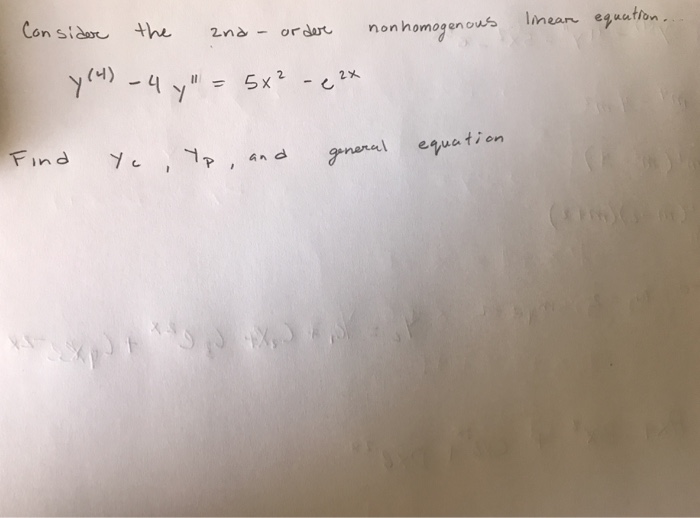 Consider the 2nd-order nonhomogenous linear equation.
y⁽⁴⁾ - 4y" = 5x² - e²ˣ
Find Yc, Yp, and general equation